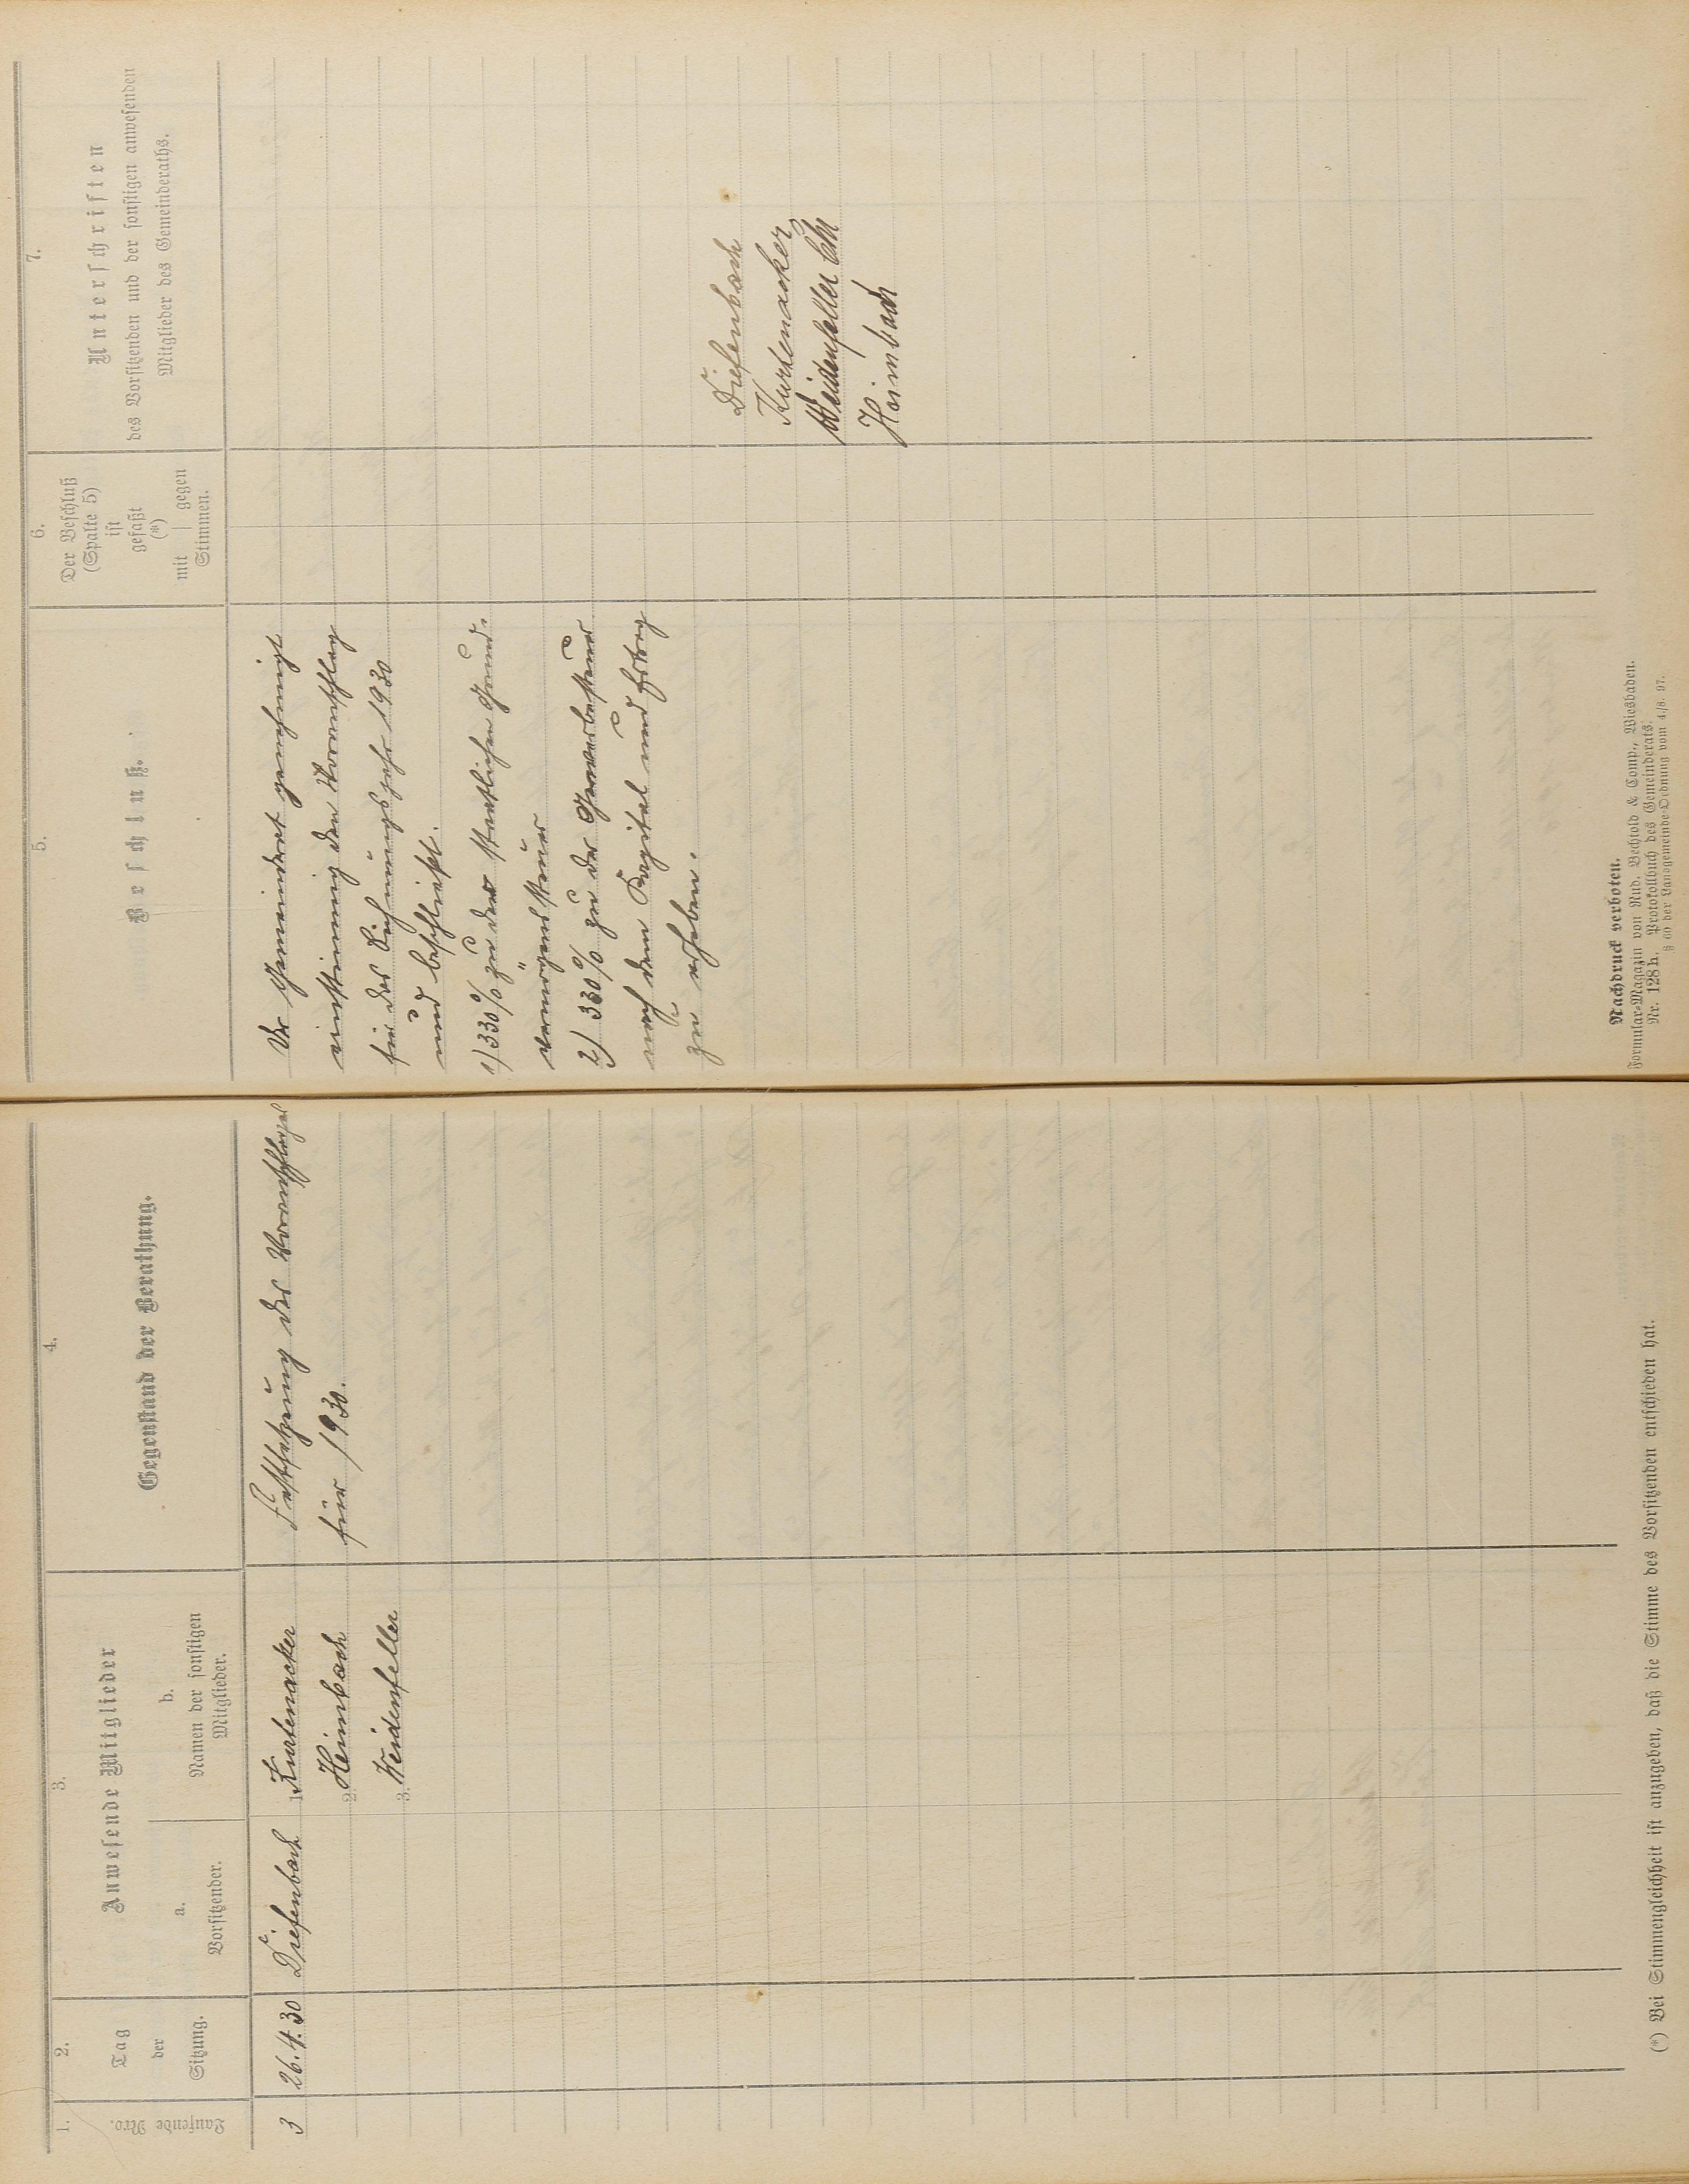 1.
Laufende Nro.
2.
Tag
der
Sitzung.
3.
Anwesende Mitglieder
a.
Vorsitzender.
b.
Namen der sonstigen
Mitglieder.
4.
Gegenstand der Berathung.
3
26.4.30
Diefenbach
1. Kurtenacker
2. Heimbach
3. Weidenfeller
Festsetzung des Voranschlages
für 1930.
(*) Bei Stimmengleichheit ist anzugeben, daß die Stimme des Vorsitzenden entschieden hat.
5.
Beschluß.
6.
Der Beschluß
(Spalte 5)
ist
gefaßt
(*)
mit | gegen
Stimmen.
7.
Unterschriften
des Vorsitzenden und der sonstigen anwesenden
Mitglieder des Gemeinderaths.
Der Gemeinderat genehmigt
einstimmig den Voranschlag
für das Rechnungsjahr 1930
und beschließt.
1) 330% zu der staatlichen Grund-
vermögenssteuer
2) 330% zu der Gewerbesteuer
nach dem Kapital und Ertrag
zu erheben.
Diefenbach
Kurtenacker
Weidenfeller
Heimbach
Nachdruck verboten.
Formular-Magazin von Rud. Bechtold & Comp., Wiesbaden.
Nr. 128 h. Protokollbuch des Gemeinderats.
§ 60 der Landgemeinde-Ordnung vom 4./8. 97.